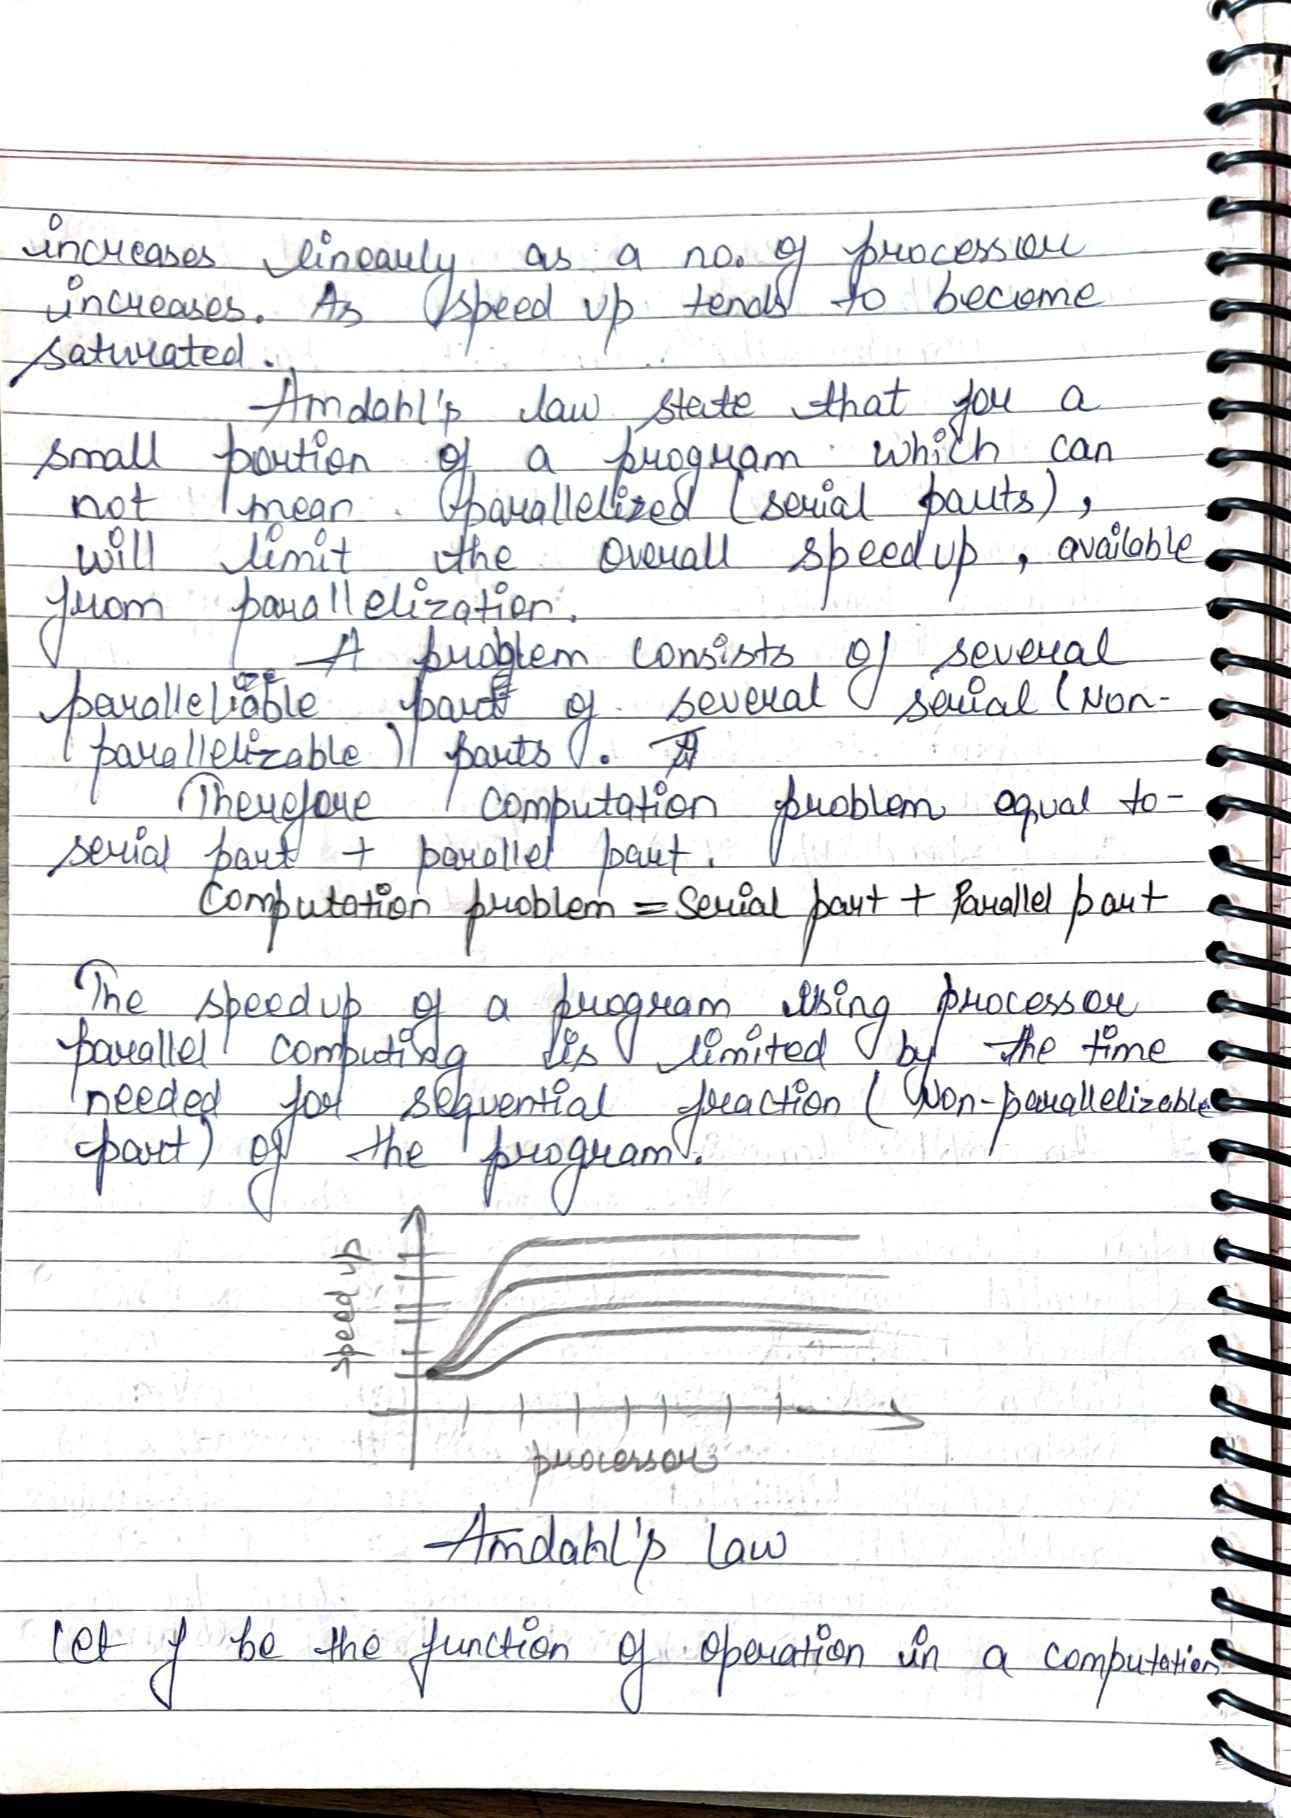 increases linearly as a no. of processor
increases. As speed up tends to become
saturated.
Amdahl's law state that for a
small portion of a program which can
not mean parallelized (serial parts),
will limit the overall speedup, available
from parallelization.
A problem consists of several
part of several serial (Non-
parallelizable) parts.
Therefore computation problem equal to-
serial part + parallel part.
Computation problem = Serial part + Parallel part
The speedup of a program using processor
parallel computing is limited by the time
needed for sequential fraction (Non-parallelizable
part) of the program.
speed up
processors
Amdahl's Law
let f be the function of operation in a computation